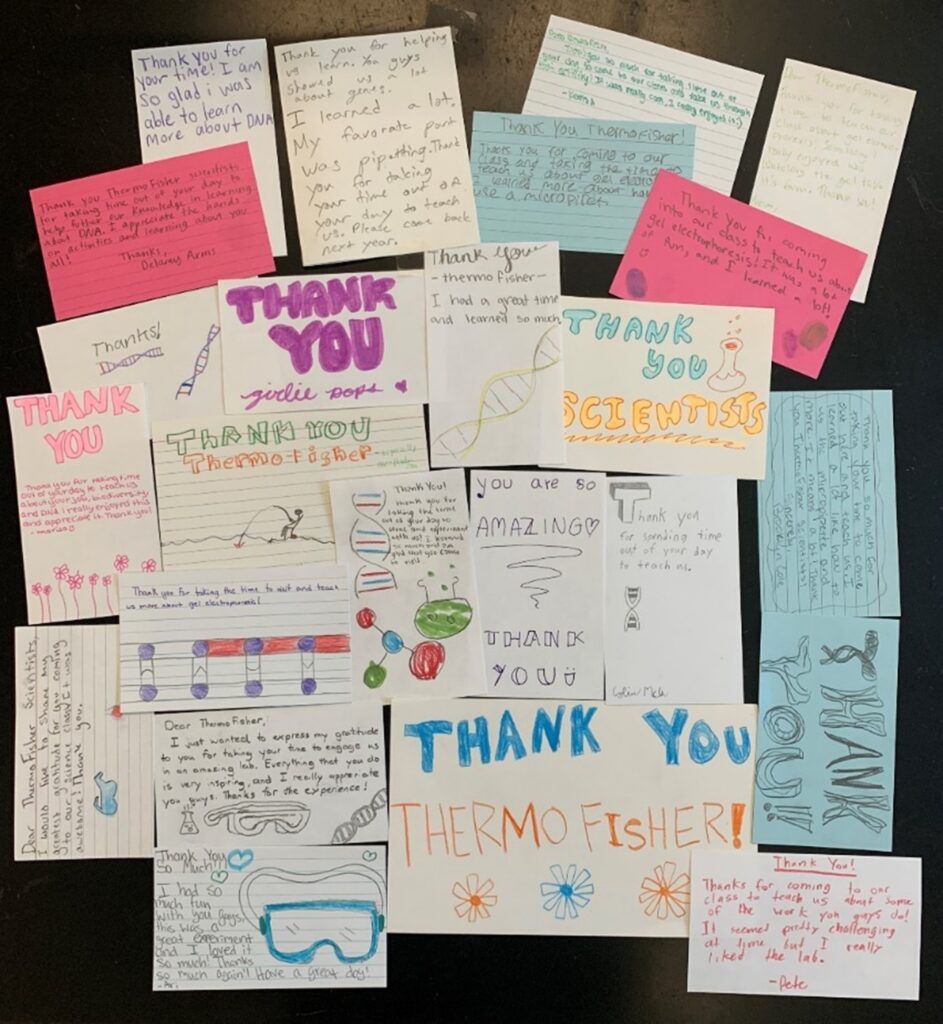 Thank you for
your time! I am
so glad i was
able to learn
more about DNA
Thank you for helping
us learn. You guys
showed us a lot
about genes.
I learned a lot.
My favorate part
was pipetting. Thank
you for taking
your time out of
your day to teach
us. Please come back
next year.
Thank you so much for taking time out of
your day to come to our class and take us through
It was really cool, I really enjoyed it :)
Dear ThermoFisher,
Thank you for taking
time to teach our
class about gel
I
really enjoyed
watching the gel
Thank You ThermoFisher!
Thank you for coming to our
class and taking the time to
teach us about gel
I learned more about how
use a micropipet.
Thank you ThermoFisher scientists
for taking time out of your day to
help futher our knowledge in learning
about DNA. I appreciate the hands
on activities and learning about you
all!
Thanks,
Delaney Arms
Thank you for coming
into our class to teach us about
gel electrophoresis! It was a lot
of fun, and I learned a lot!
Thanks!
THANK
YOU
girlie pops
Thank you
-thermo fisher-
I had a great time
and learned so much
THANK
YOU
SCIENTISTS
THANK
YOU
Thank you for taking time
out of your day to teach us
about your job, biodiversity,
and DNA. I really enjoyed this
and appreciate it. Thank you!
- marissa
THANK YOU
Thermo fisher
Thank You!
thank you for
taking the time
out of your day to
come and experiment
with us! I learned
so much and am
glad that you came
to visit
you are so
AMAZING♡
THANK
YOU
Thank you
for spending time
out of your day
to teach us.
Thank you so much for
taking your time to come
out here and teach us. I
learned a lot like how to
us the micropipette and
more. It means a lot. Thank
you ThermoFisher Scientists!
Sincerely,
Thank you for taking the time to visit and teach
us more about gel electrophoresis!
Dear ThermoFisher Scientists,
I would like to share my
greatest gratitude for you coming
to our science class. It was
awesome! Thank you.
Dear ThermoFisher,
I just wanted to express my gratitude
to you for taking your time to engage us
in an amazing lab. Everything that you do
is very inspiring, and I really appreciate
you guys. Thanks for the experience!
THANK
YOU!!
THANK YOU
THERMO FISHER!
Thank You
So Much!!
I had so
much fun
with you guys,
this was a
great experiment
and I loved it
so much! Thanks
so much again! Have a great day!
- Ari
Thank You!
Thanks for coming to our
class to teach us about some
of the work you guys do!
It seemed pretty challenging
at time but I really
liked the lab.
-Pete